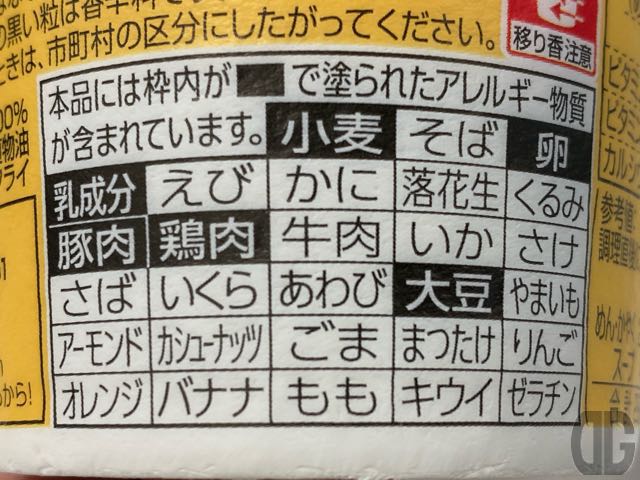 の黒い粒は香辛料です
ときは、市町村の区分にしたがってください。
移り香注意
本品には枠内が■で塗られたアレルギー物質
が含まれています。 小麦 そば 卵
乳成分 えび かに 落花生 くるみ
豚肉 鶏肉 牛肉 いか さけ
さば いくら あわび 大豆 やまいも
アーモンド カシューナッツ ごま まつたけ りんご
オレンジ バナナ もも キウイ ゼラチン
00%
物油
フライ
から!
[ビタ
[ビタミ
カルシ
参考値
調理直
めん・かやく
スープ
DG